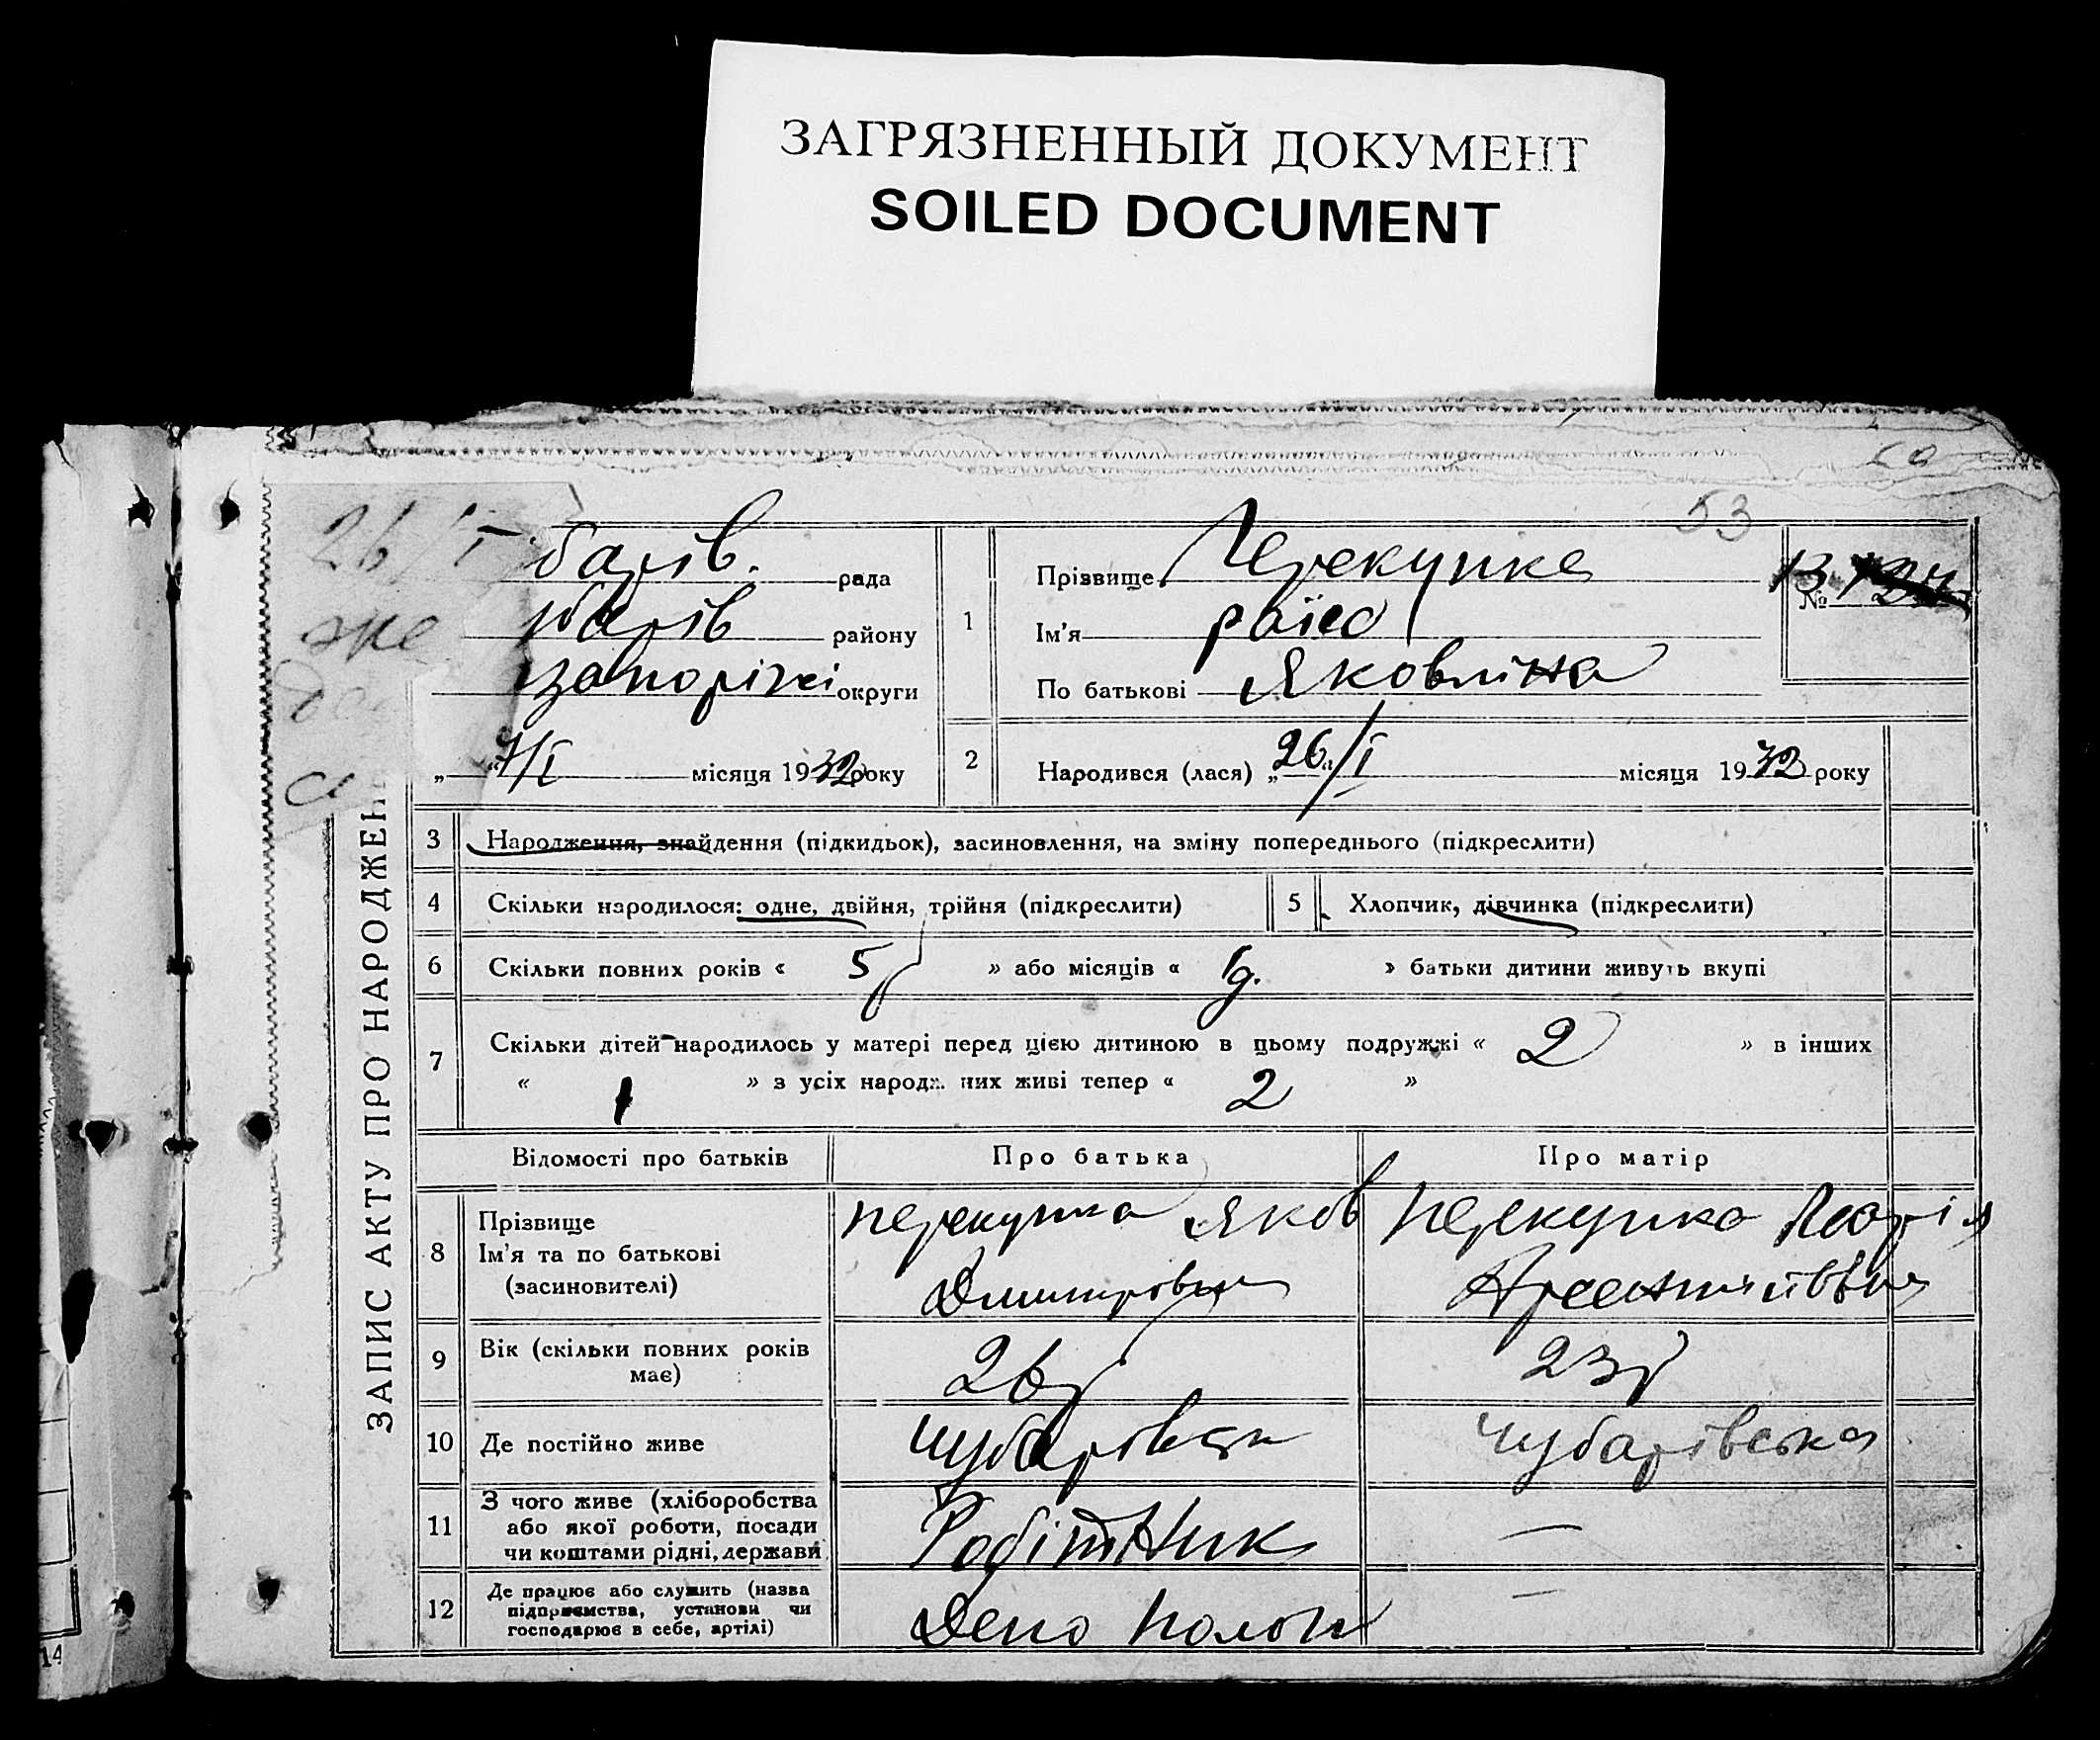 ЗАГРЯЗНЕННЫЙ ДОКУМЕНТ
SOILED DOCUMENT
53
26/I
барів. рада
барів району
запоріжі округи
„ 7/I місяця 1932 року
ЗАПИС АКТУ ПРО НАРОДЖЕН
1
Прізвище Перекупка
Ім'я раїса
По батькові Яковлівна
№ 13
2 Народився (лася) „26“/I місяця 1932 року
3 Народження, знайдення (підкидьок), засиновлення, на зміну попереднього (підкреслити)
4 Скільки народилося: одне, двійня, трійня (підкреслити)
5 Хлопчик, дівчинка (підкреслити)
6 Скільки повних років « 5 » або місяців « » батьки дитини живуть вкупі
7 Скільки дітей народилось у матері перед цією дитиною в цьому подружжі « 2 » в інших
« » з усіх народж. них живі тепер « 2 »
Відомості про батьків Про батька Про матір
8 Прізвище
Ім'я та по батькові
(засиновителі)
перекупка Яков
Дмитрович
перекупка Марія
Арсентиівна
9 Вік (скільки повних років
має)
26р 23р
10 Де постійно живе Чубарівськ Чубарівська
11 З чого живе (хліборобства
або якої роботи, посади
чи коштами рідні, держави
Робітник —
12 Де працює або служить (назва
підприємства, установи чи
господарює в себе, артілі)
Депо Пологи —
14